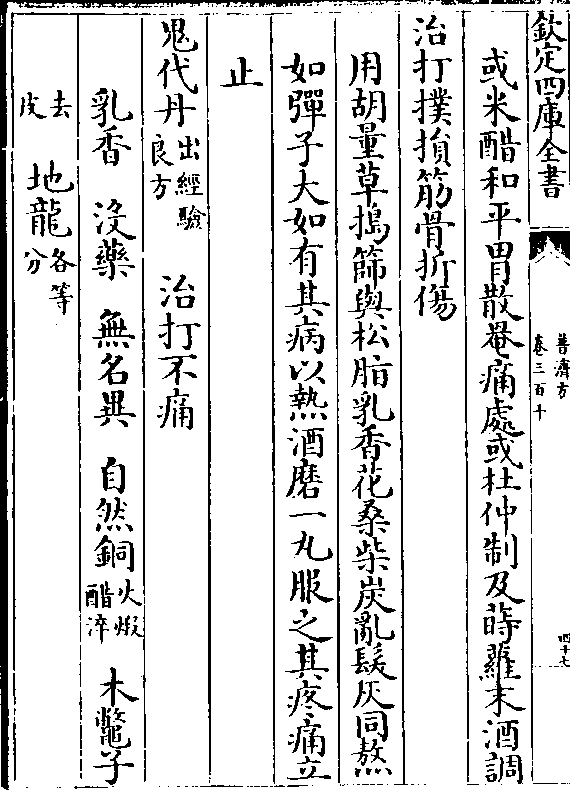 欽定四庫全書
普濟方
卷三百十
四十七
或米醋和平胃散罨痛處或杜仲制及蒔蘿末酒調
治打撲損筋骨折傷
用胡量草搗篩與松脂乳香花桑柴炭亂髮灰同熬
如彈子大如有其病以熱酒磨一丸服之其疼痛立
止
鬼代丹出經驗良方 治打不痛
乳香 沒藥 無名異 自然銅火煅醋淬 木鼈子
去皮 地龍各等分